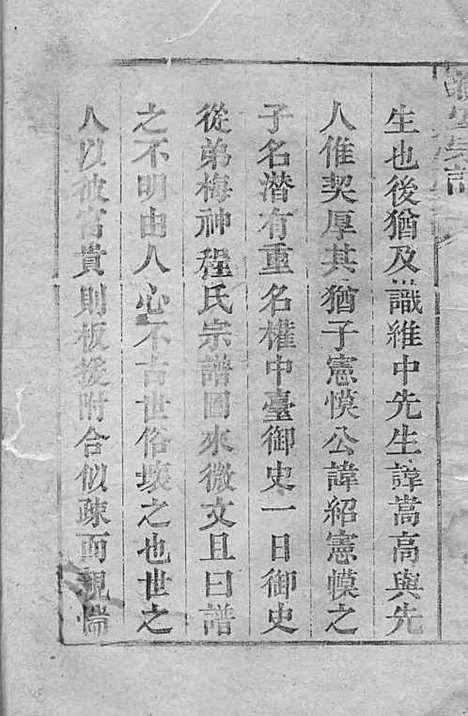 生也後猶及識維中先生諱嵩高與先
人惟契厚其猶子憲幙公諱紹憲幙之
子名潛有重名權中臺御史一日御史
從弟梅神程氏宗譜圖來徵文且曰譜
之不明由人心不古世俗壞之也世之
人以彼富貴則板援附合似疎而親惴